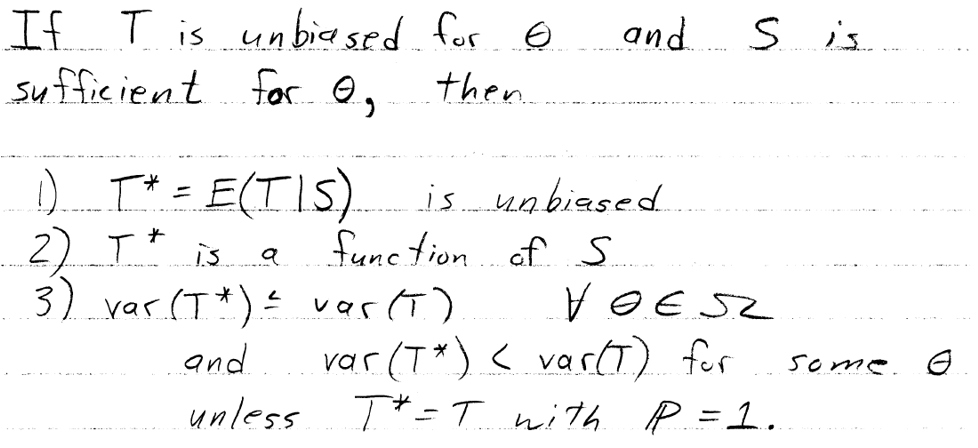 If T is unbiased for Θ and S is
sufficient for Θ, then
1) T* = E(T|S) is unbiased
2) T* is a function of S
3) var(T*) ≤ var(T) ∀ Θ ∈ Ω
and var(T*) < var(T) for some Θ
unless T* = T with P = 1.